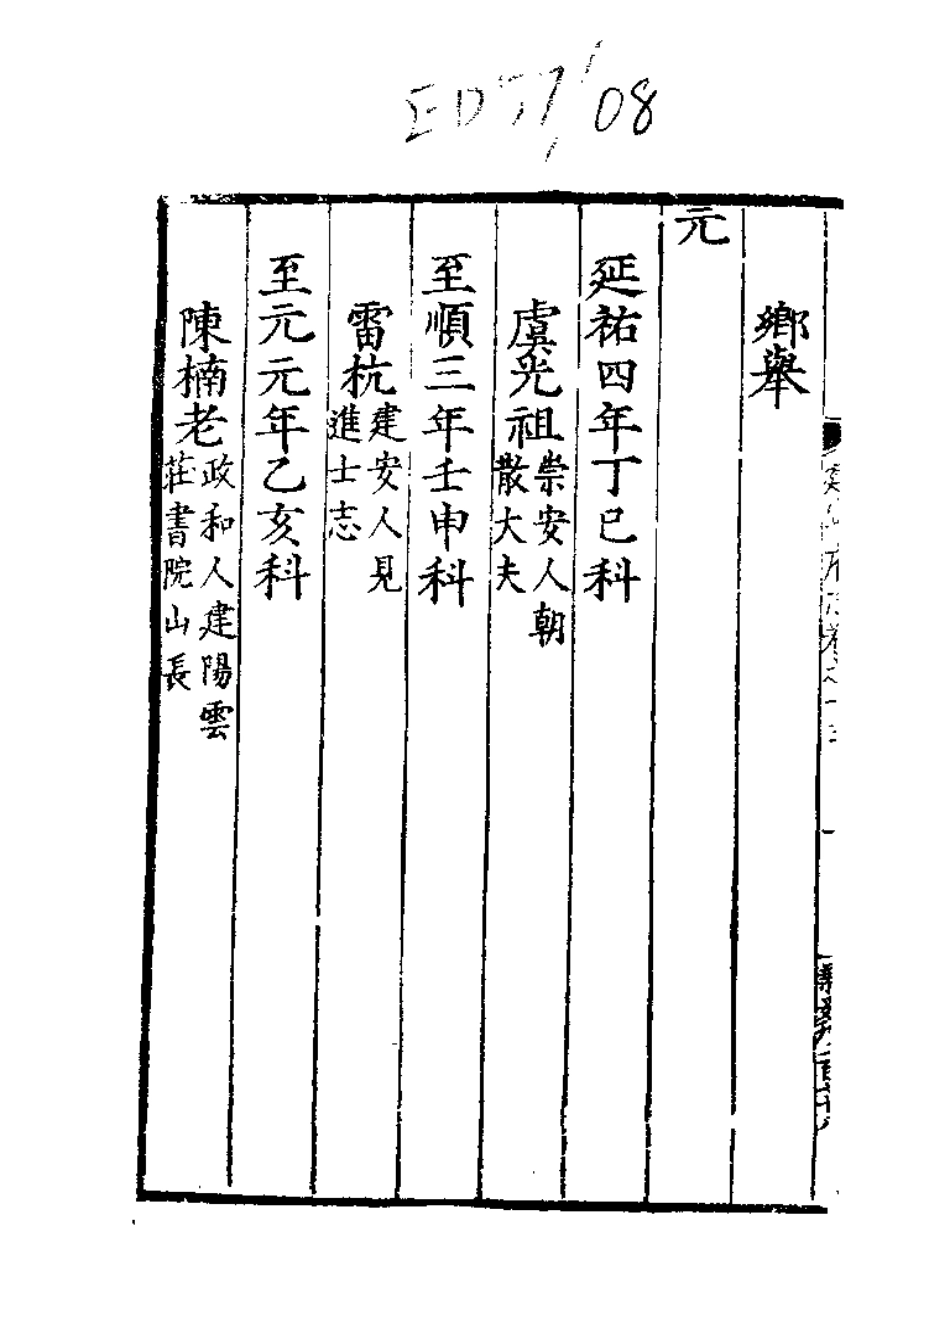 ED77/08
鄉舉
元
延祐四年丁巳科
虞光祖崇安人朝散大夫
至順三年壬申科
雷杭建安人見進士志
至元元年乙亥科
陳楠老政和人建陽雲莊書院山長